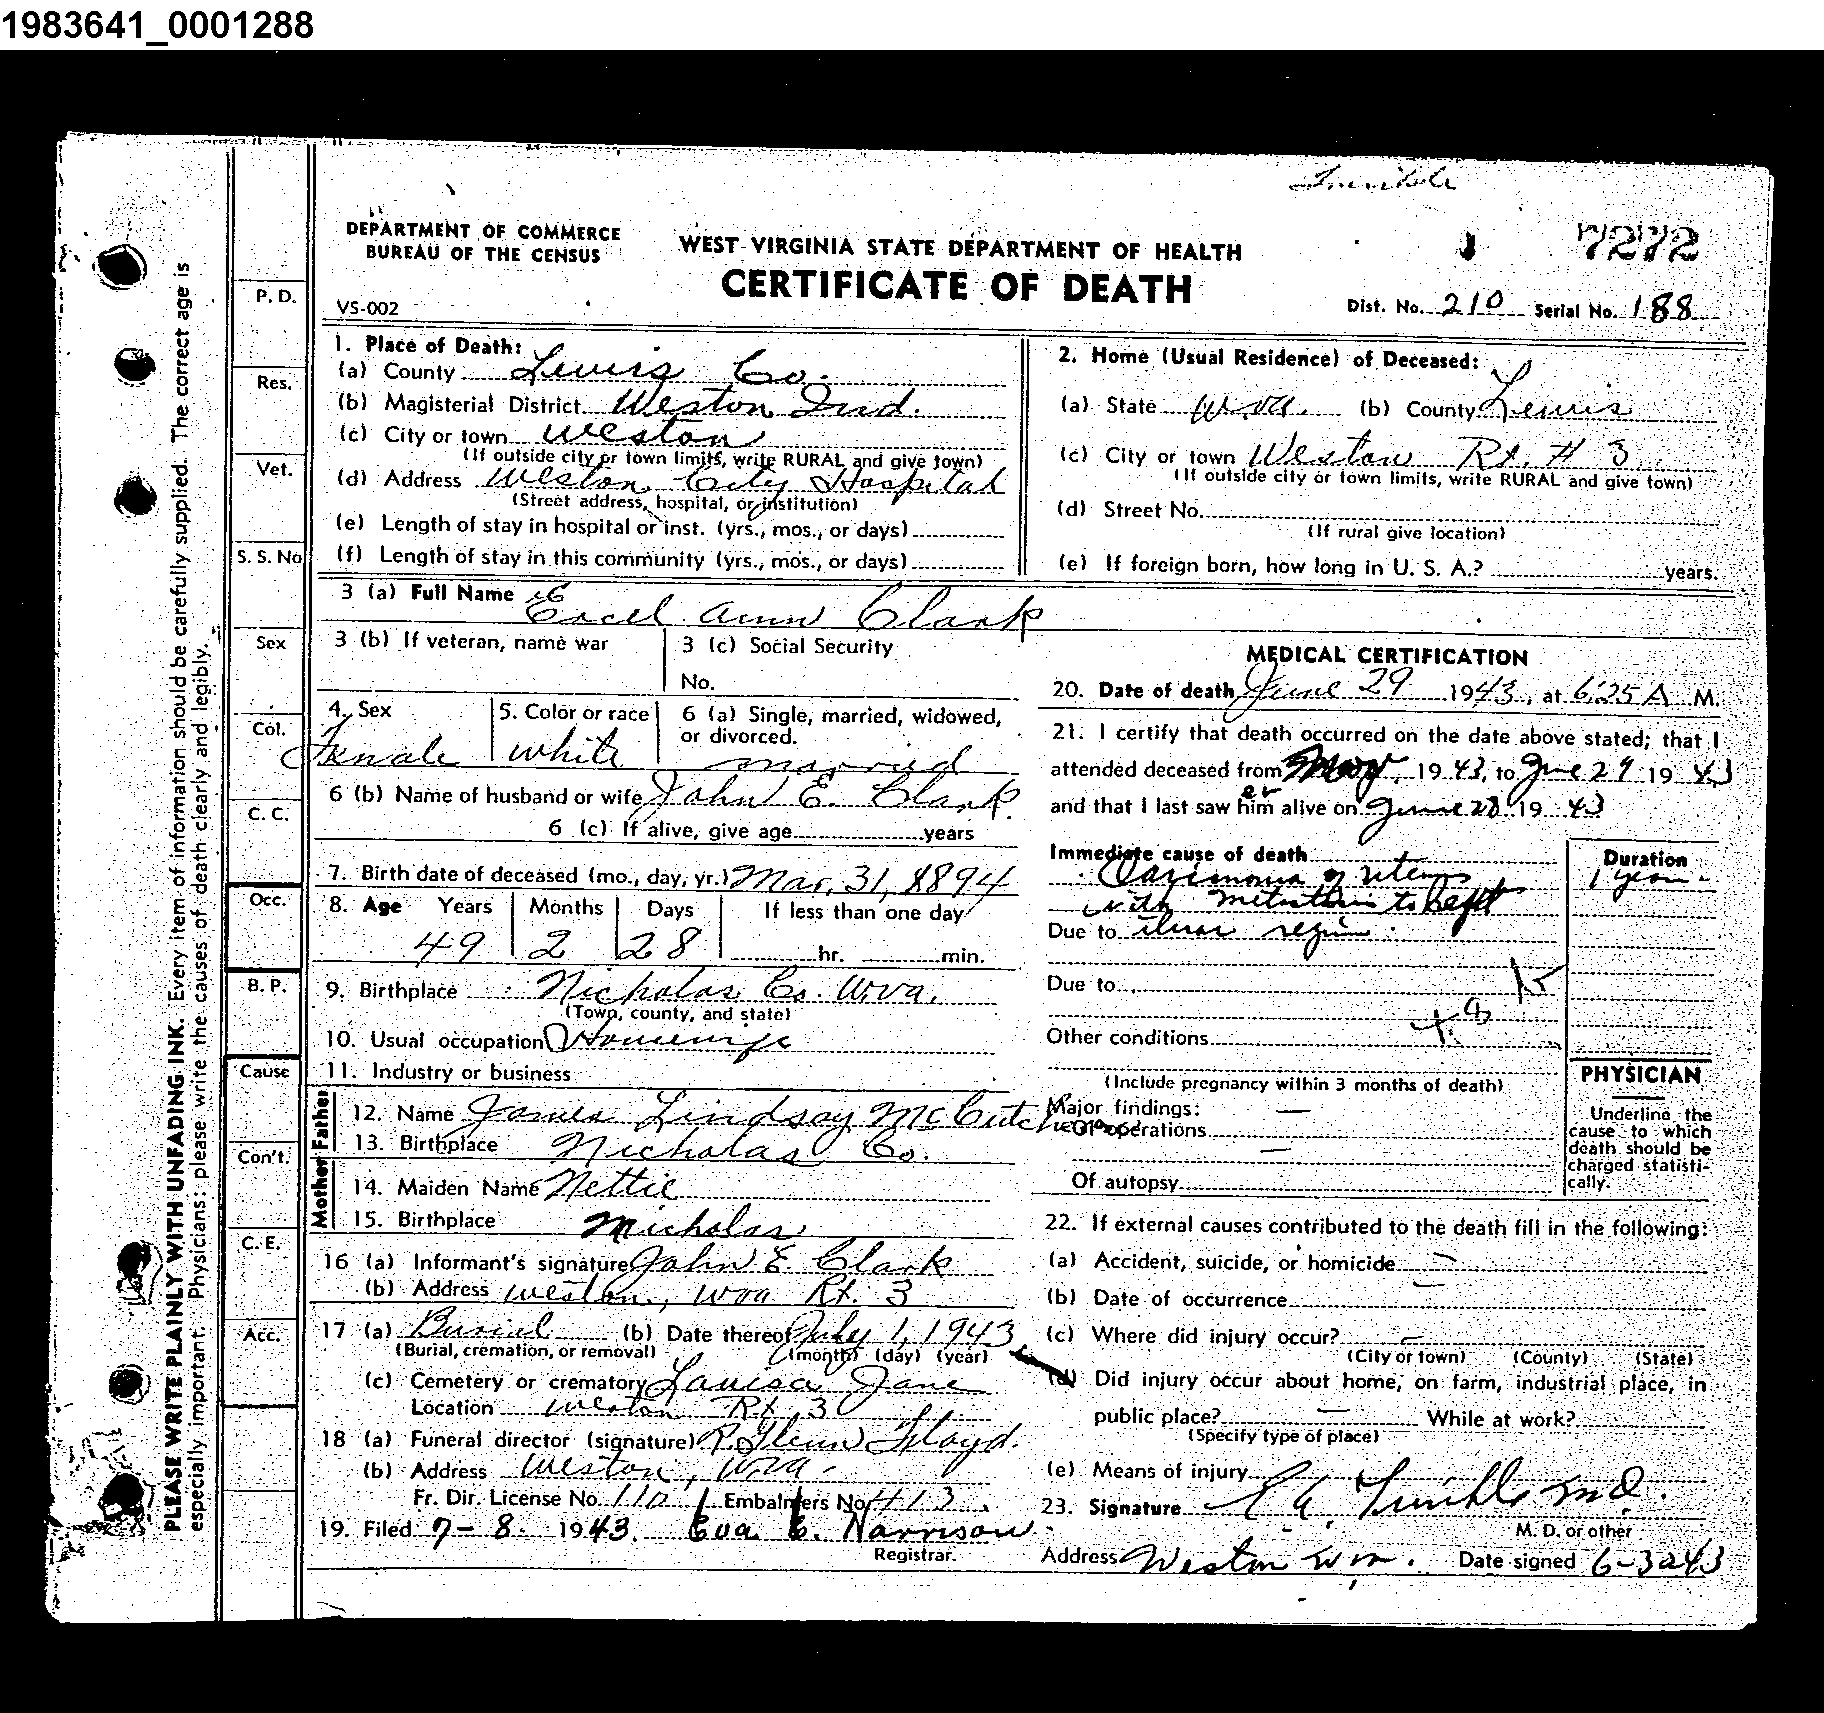 1983641_0001288
Trimble
DEPARTMENT OF COMMERCE
BUREAU OF THE CENSUS
WEST VIRGINIA STATE DEPARTMENT OF HEALTH
CERTIFICATE OF DEATH
7272
VS-002
Dist. No. 210 Serial No. 188
1. Place of Death:
(a) County Lewis Co.
(b) Magisterial District Weston Ind.
(c) City or town Weston
(If outside city or town limits, write RURAL and give town)
(d) Address Weston City Hospital
(Street address, hospital, or institution)
(e) Length of stay in hospital or inst. (yrs., mos., or days)
(f) Length of stay in this community (yrs., mos., or days)
2. Home (Usual Residence) of Deceased:
(a) State W.Va. (b) County Lewis
(c) City or town Weston Rt. # 3
(If outside city or town limits, write RURAL and give town)
(d) Street No.
(If rural give location)
(e) If foreign born, how long in U. S. A.? years.
3 (a) Full Name Excel Ann Clark
3 (b) If veteran, name war
3 (c) Social Security
No.
4. Sex Female
5. Color or race White
6 (a) Single, married, widowed,
or divorced. married
6 (b) Name of husband or wife John E. Clark
6 (c) If alive, give age years
7. Birth date of deceased (mo., day, yr.) Mar. 31, 1894
8. Age Years Months Days If less than one day
49 2 28 hr. min.
9. Birthplace Nicholas Co. W.Va.
(Town, county, and state)
10. Usual occupation Housewife
11. Industry or business
Father
12. Name James Lindsay McCutcheon
13. Birthplace Nicholas Co.
Mother
14. Maiden Name Nettie
15. Birthplace Nicholas
16 (a) Informant's signature John E. Clark
(b) Address Weston, W Va Rt. 3
17 (a) Burial (b) Date thereof July 1, 1943
(Burial, cremation, or removal) (month) (day) (year)
(c) Cemetery or crematory Louisa Jane
Location Weston Rt 3
18 (a) Funeral director (signature) R. Glenn Floyd.
(b) Address Weston, W.Va.
Fr. Dir. License No. 110 Embalmers No. 413
19. Filed 7-8- 1943. Eva E. Harrison
Registrar.
MEDICAL CERTIFICATION
20. Date of death June 29 1943, at 6:25 A M.
21. I certify that death occurred on the date above stated; that I
attended deceased from May, 1943, to June 29 1943
er
and that I last saw him alive on June 28 19 43
Immediate cause of death
Carcinoma of uterus
with metastasis to left
Due to iliac region.
Due to
Other conditions
(Include pregnancy within 3 months of death)
Major findings:
Of operations
Of autopsy
Duration
1 year
PHYSICIAN
Underline the
cause to which
death should be
charged statisti-
cally.
22. If external causes contributed to the death fill in the following:
(a) Accident, suicide, or homicide
(b) Date of occurrence
(c) Where did injury occur?
(City or town) (County) (State)
(d) Did injury occur about home, on farm, industrial place, in
public place? While at work?
(Specify type of place)
(e) Means of injury
23. Signature Trimble M.D.
M. D. or other
Address Weston W Va. Date signed 6-30-43
P. D.
Res.
Vet.
S. S. No
Sex
Col.
C. C.
Occ.
B. P.
Cause
Con't.
C. E.
Acc.
PLEASE WRITE PLAINLY WITH UNFADING INK. Every item of information should be carefully supplied. The correct age is
especially important. Physicians: please write the causes of death clearly and legibly.